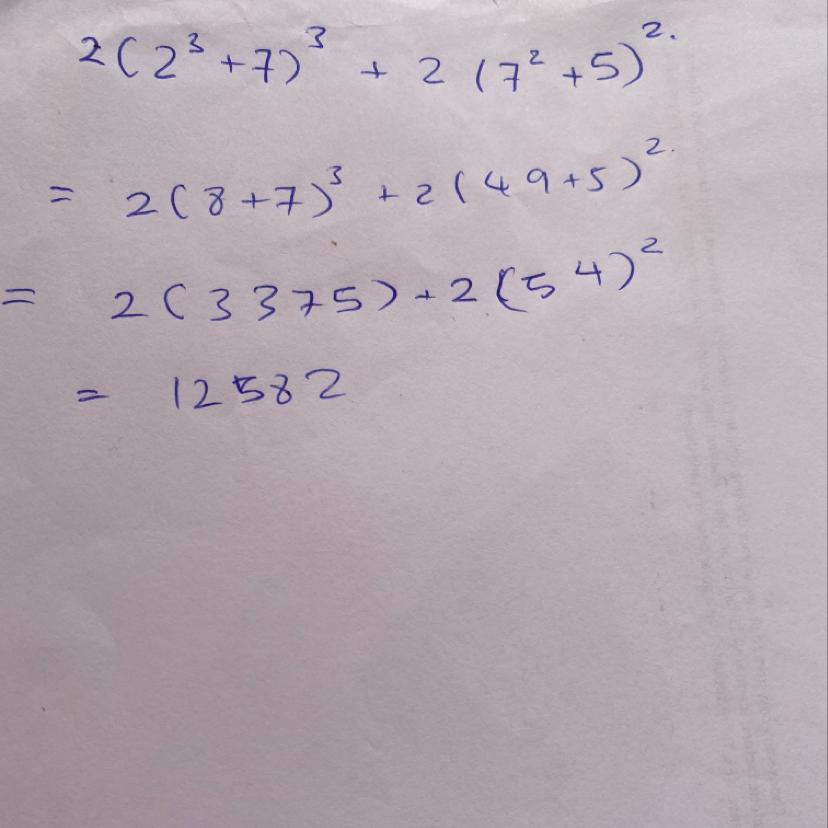 2(2³+7)³ + 2 (7²+5)².
= 2(8+7)³ +2(49+5)².
= 2(3375)+2(54)²
= 12582